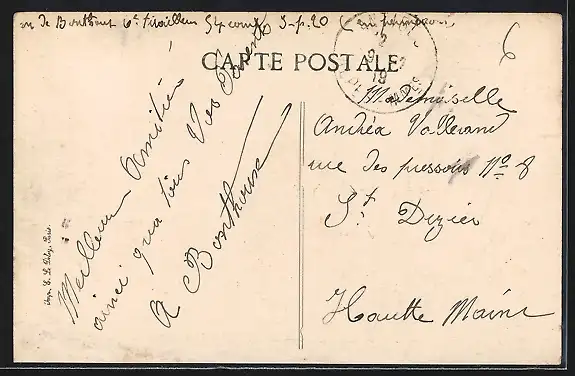 de Bonthoux 6e tirailleur 54 comp S-p. 20
CARTE POSTALE
6
Mademoiselle
Andréa Vallerand
rue des pressoirs No 8
St Dizier
Hautte Marne
Meilleur Amitiés
ainci qua tous Vos Parents
A Bonthoux
Imp. E. Le Deley, Paris.